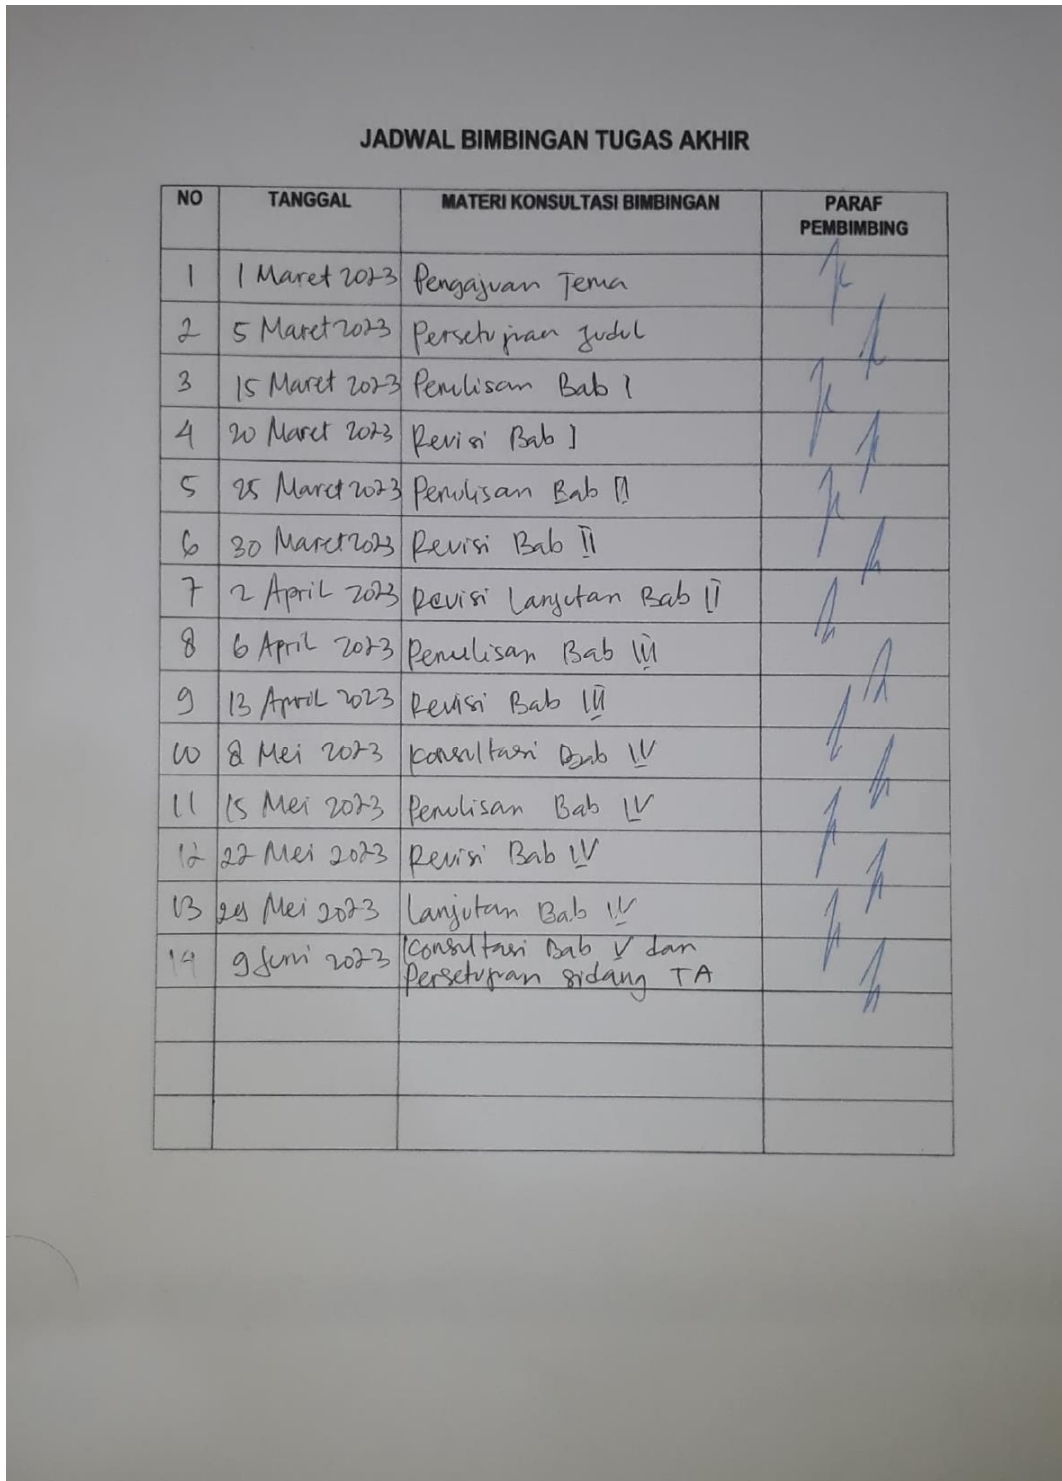 JADWAL BIMBINGAN TUGAS AKHIR
NO TANGGAL MATERI KONSULTASI BIMBINGAN PARAF PEMBIMBING
1 1 Maret 2023 Pengajuan Tema
2 5 Maret 2023 Persetujuan Judul
3 15 Maret 2023 Penulisan Bab I
4 20 Maret 2023 Revisi Bab I
5 25 Maret 2023 Penulisan Bab II
6 30 Maret 2023 Revisi Bab II
7 2 April 2023 Revisi Lanjutan Bab II
8 6 April 2023 Penulisan Bab III
9 13 April 2023 Revisi Bab III
10 8 Mei 2023 Konsultasi Bab IV
11 15 Mei 2023 Penulisan Bab IV
12 22 Mei 2023 Revisi Bab IV
13 29 Mei 2023 Lanjutan Bab IV
14 9 Juni 2023 Konsultasi Bab V dan
Persetujuan sidang TA